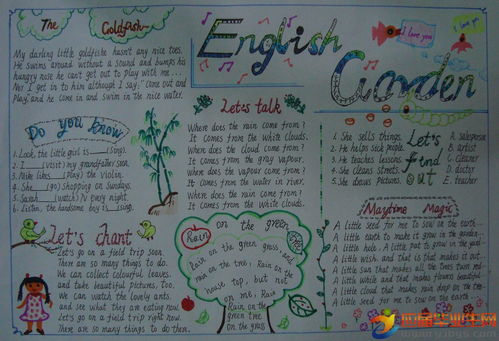 The Goldfish
My darling little goldfish hasn't any nice toes.
He swims around without a sound and bumps his
hungry nose he can't get out to play with me...
Nor I get in to him although I say: "come out and
Play, and he come in and swim in the nice water.
English
Garden
I love you
I love you
Do you know
1. Look, the little girl is ing.
2. I (visit) my grandfather soon.
3. Mike likes (play) the violin.
4. She (go) shopping on Sundays.
5. Sarah (watch) TV every night.
6. Listen, the handsome boy is ing.
Let's talk
Where does the rain come from?
It comes from the white clouds.
Where does the cloud come from?
It comes from the gray vapour.
where does the vapour come from?
It comes from the water in river.
Where does the rain come from?
It comes from the white clouds.
1. She sells things.
2. He helps sick people.
3. He teaches lessons.
4. She cleans streets.
5. She draws pictures.
Let's
find
out
A. Salesperson
B. artist
C. Cleaner
D. doctor
E. teacher
Let's chant
Let's go on a field trip soon.
There are so many things to do.
We can collect colourful leaves,
and take beautiful pictures, too.
We can watch the lovely ants.
and see what they are eating now.
Let's go on a field trip right now.
There are so many things to do then.
Rain on the green
Rain on the green grass and
rain on the tree, Rain on the
house top, but not
on me; Rain
Rain on the
green tree
On the grass
Maytime Magic
A little seed for me to sow
A little earth to make it grow
A little hole, A little pat
A little wish, and that is that
A little sun that makes
A little while and that makes flowers
A little cloud that makes rain drop on the
A little seed for me to sow